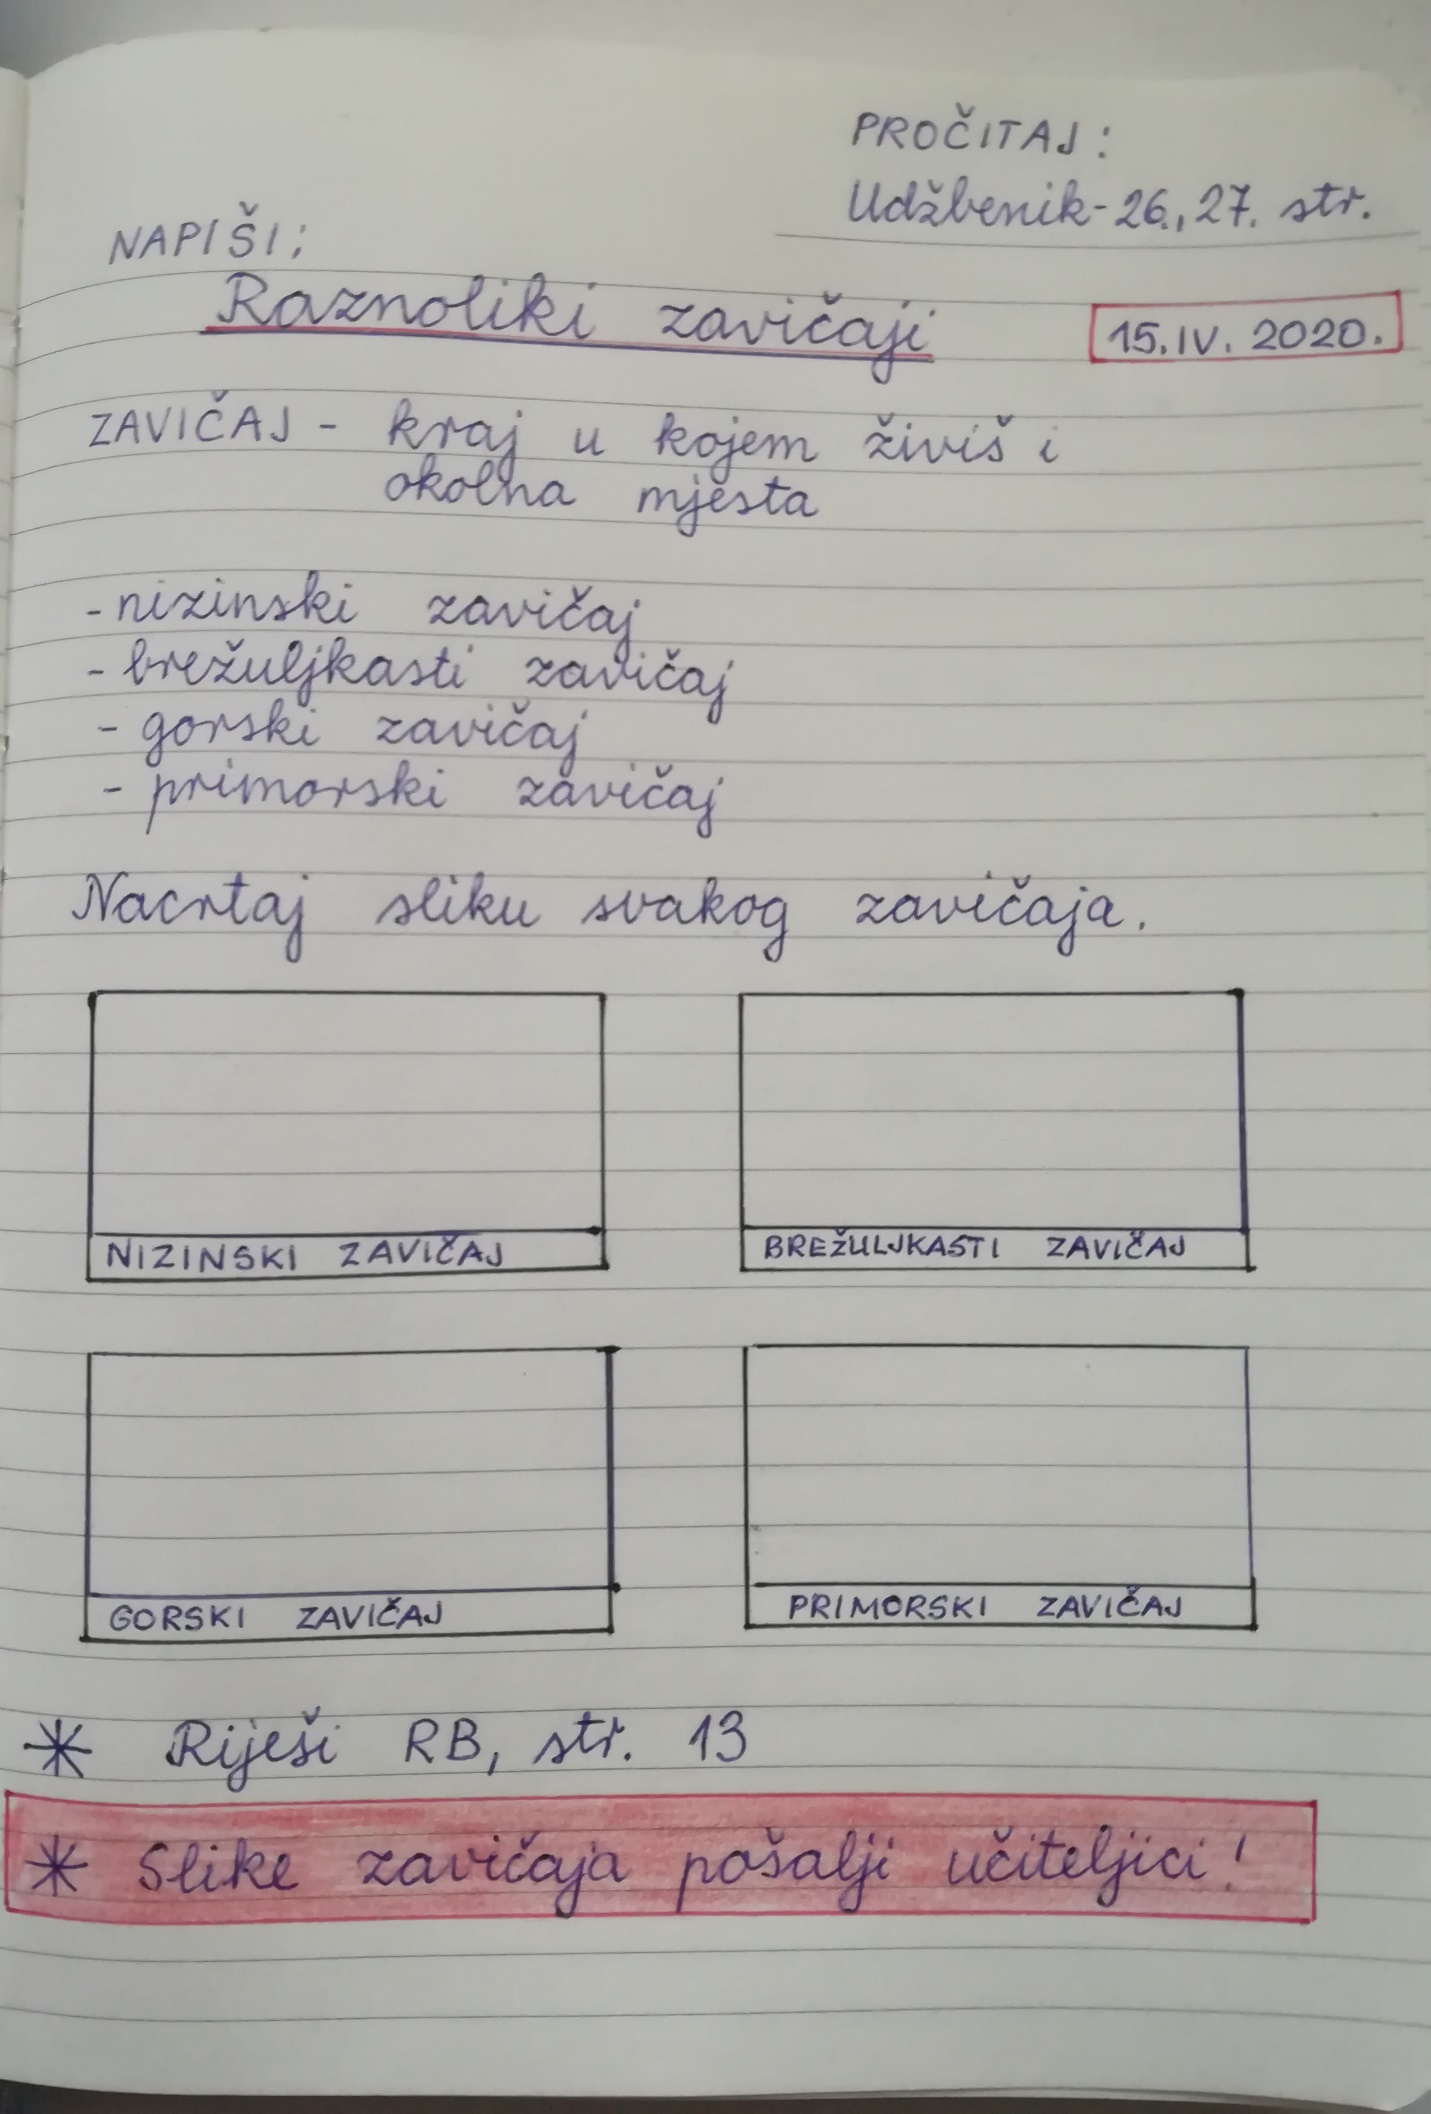 PROČITAJ:
Udžbenik - 26., 27. str.
NAPIŠI:
Raznoliki zavičaji
15. IV. 2020.
ZAVIČAJ - kraj u kojem živiš i
okolna mjesta
- nizinski zavičaj
- brežuljkasti zavičaj
- gorski zavičaj
- primorski zavičaj
Nacrtaj sliku svakog zavičaja.
NIZINSKI ZAVIČAJ
BREŽULJKASTI ZAVIČAJ
GORSKI ZAVIČAJ
PRIMORSKI ZAVIČAJ
* Riješi RB, str. 13
* Slike zavičaja pošalji učiteljici!